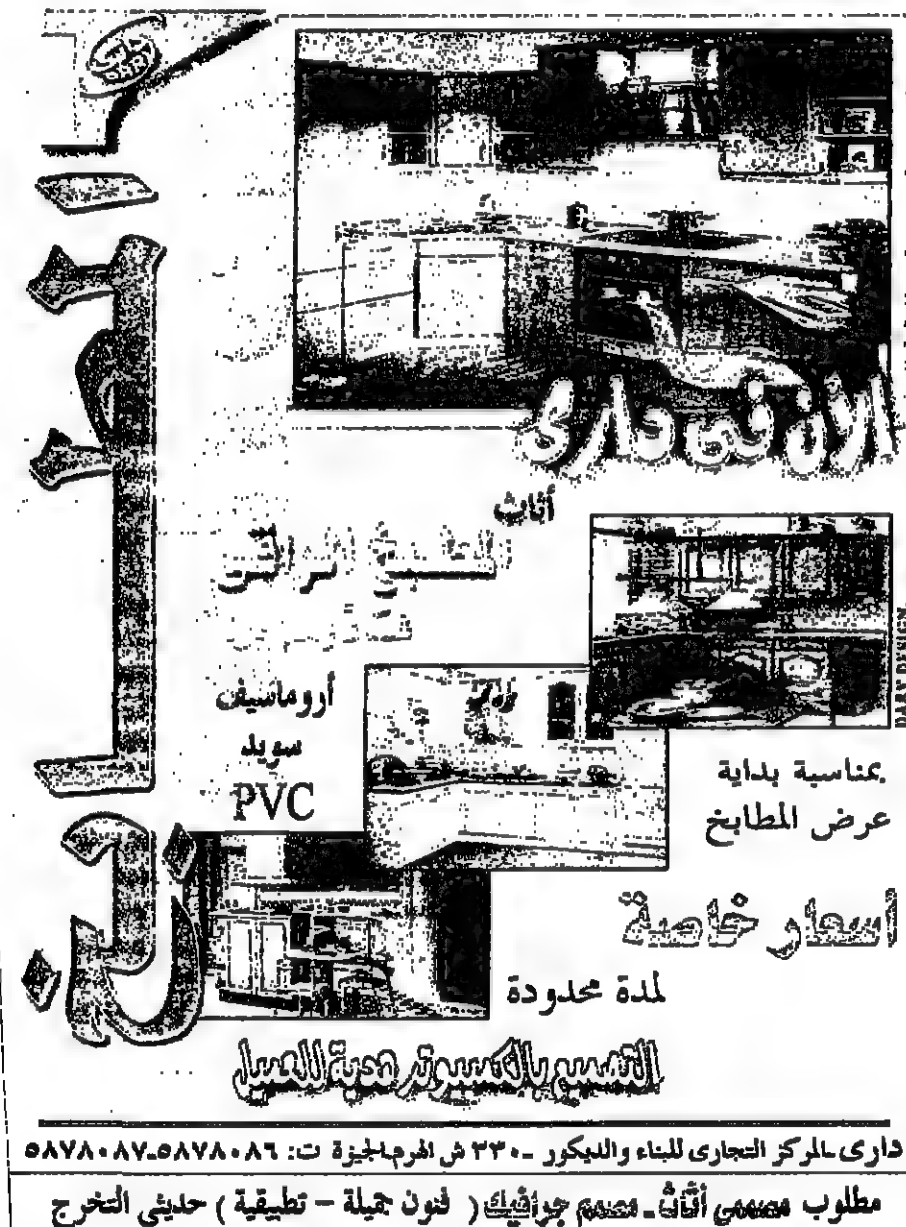 الآن فى دارى
أثاث
المطبخ الراقى
أروماسيف
سويد
PVC
بمناسبة بداية
عرض المطابخ
أسعار خاصة
لمدة محدودة
التصميم بالكمبيوتر هدية للعميل
دارى ـ المركز التجارى للبناء والديكور ـ ٣٣٠ ش الهرم ـ الجيزة ت: ٥٨٧٨٠٨٦ـ٥٨٧٨٠٨٧
مطلوب مصممي أثاث ـ مصمم جرافيك ( فنون جميلة – تطبيقية ) حديثى التخرج